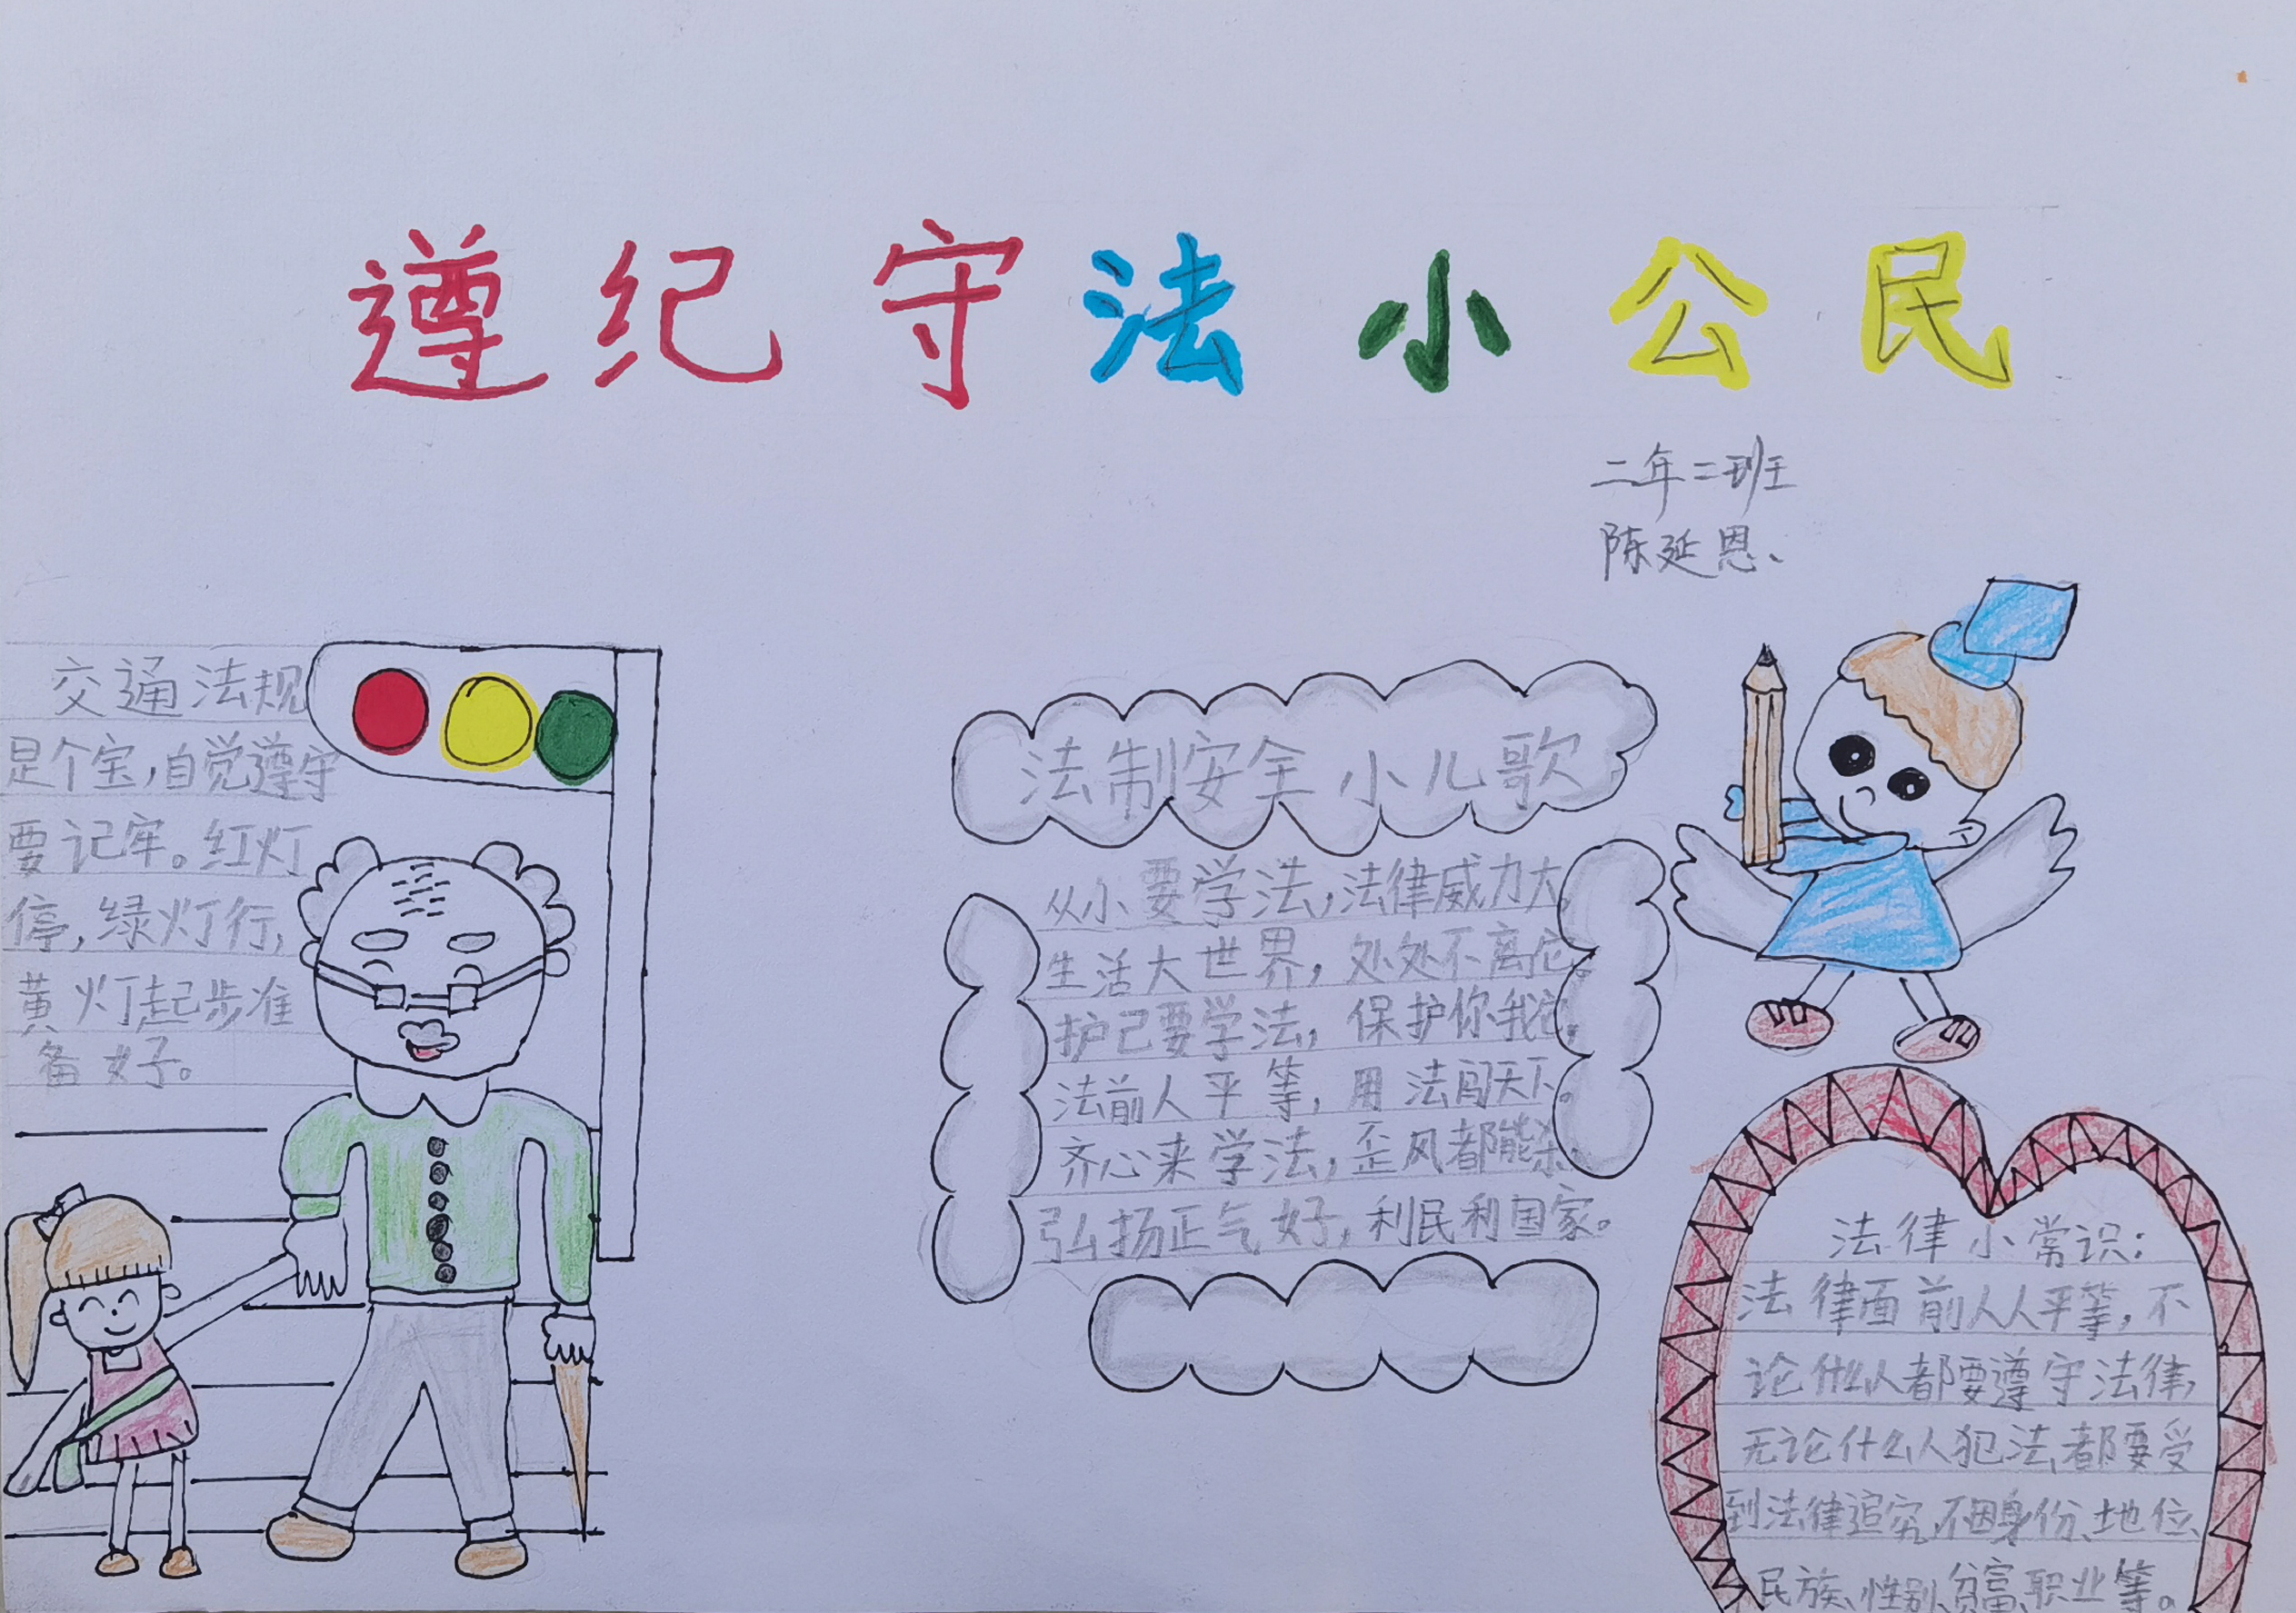 遵纪守法小公民
二年二班
陈延恩、
交通法规
是个宝,自觉遵守
要记牢。红灯
停,绿灯行,
黄灯起步准
备好。
法制安全小儿歌
从小要学法,法律威力大。
生活大世界,处处不离它。
护己要学法,保护你我它,
法前人平等,用法闯天下。
齐心来学法,歪风都能杀。
弘扬正气好,利民利国家。
法律小常识:
法律面前人人平等,不
论什么人都要遵守法律,
无论什么人犯法都要受
到法律追究,不因身份、地位、
民族、性别、贫富、职业等。